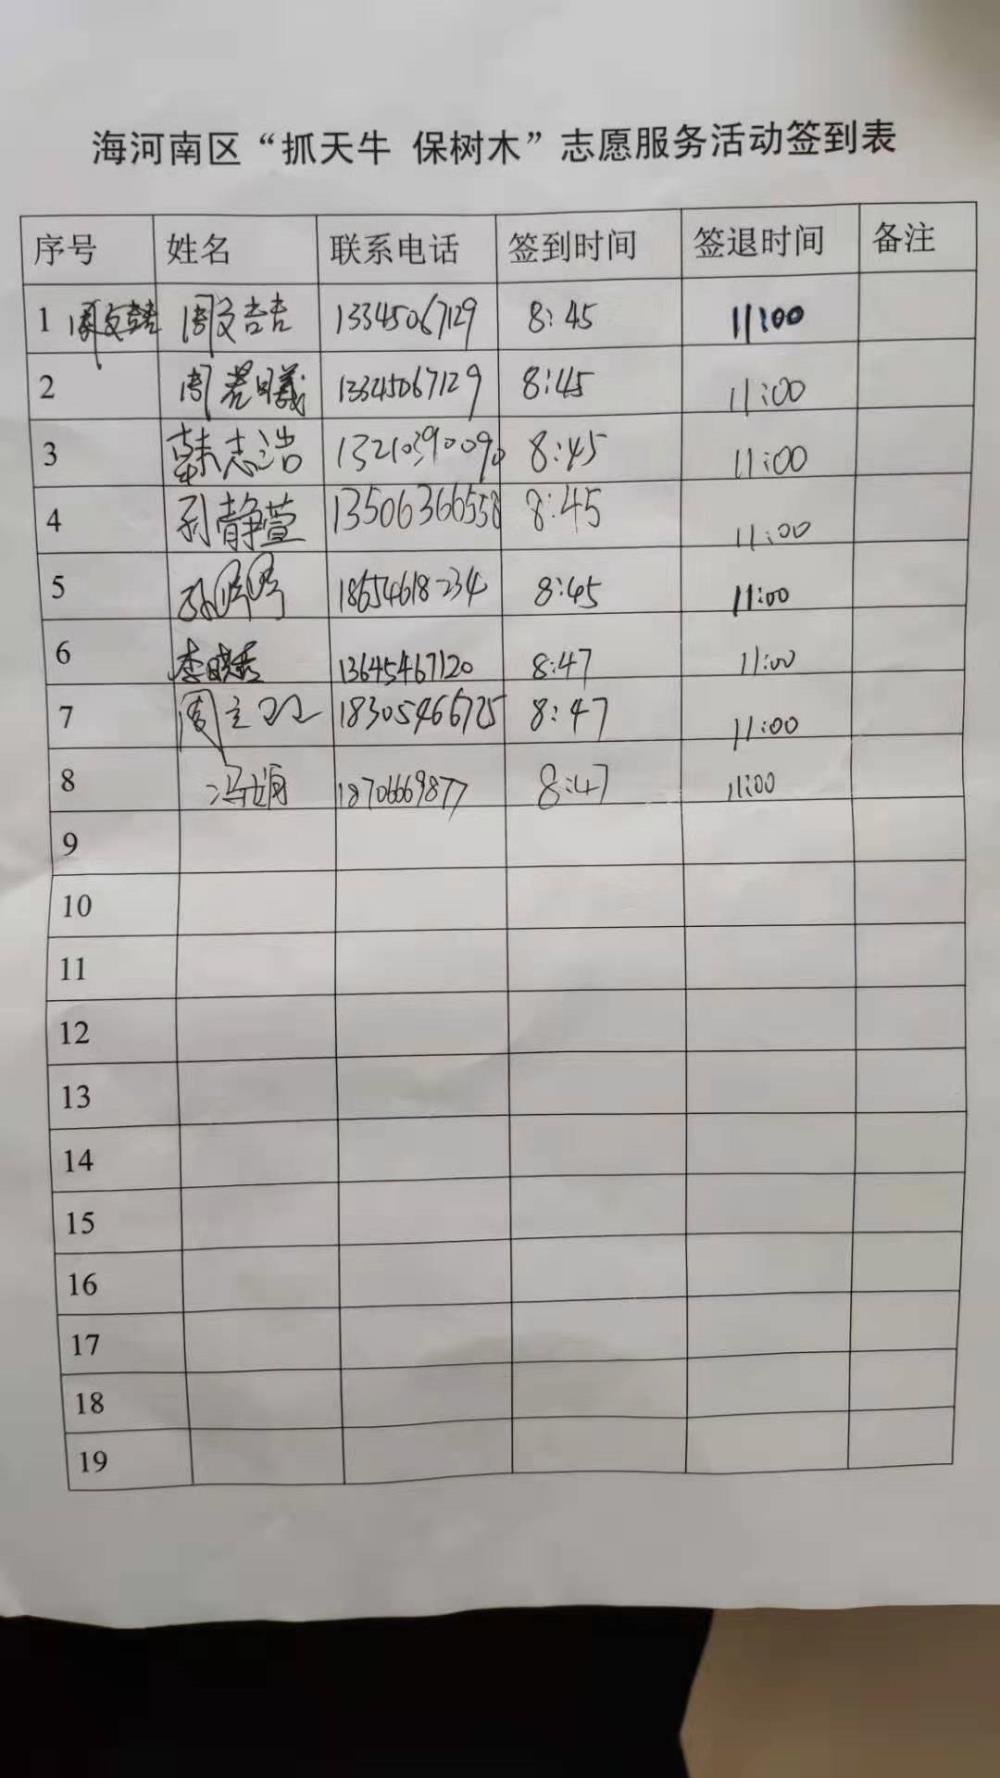 海河南区“抓天牛 保树木”志愿服务活动签到表
序号 姓名 联系电话 签到时间 签退时间 备注
1 周文喆 周文喆 13345067129 8:45 11:00
2 周 曦 13345067129 8:45 11:00
3 韩志浩 13210390090 8:45 11:00
4 孙静萱 13506366558 8:45 11:00
5 18654618234 8:45 11:00
6 李晓秀 13645467120 8:47 11:00
7 周立 18305466725 8:47 11:00
8 冯娟 18706669877 8:47 11:00
9
10
11
12
13
14
15
16
17
18
19